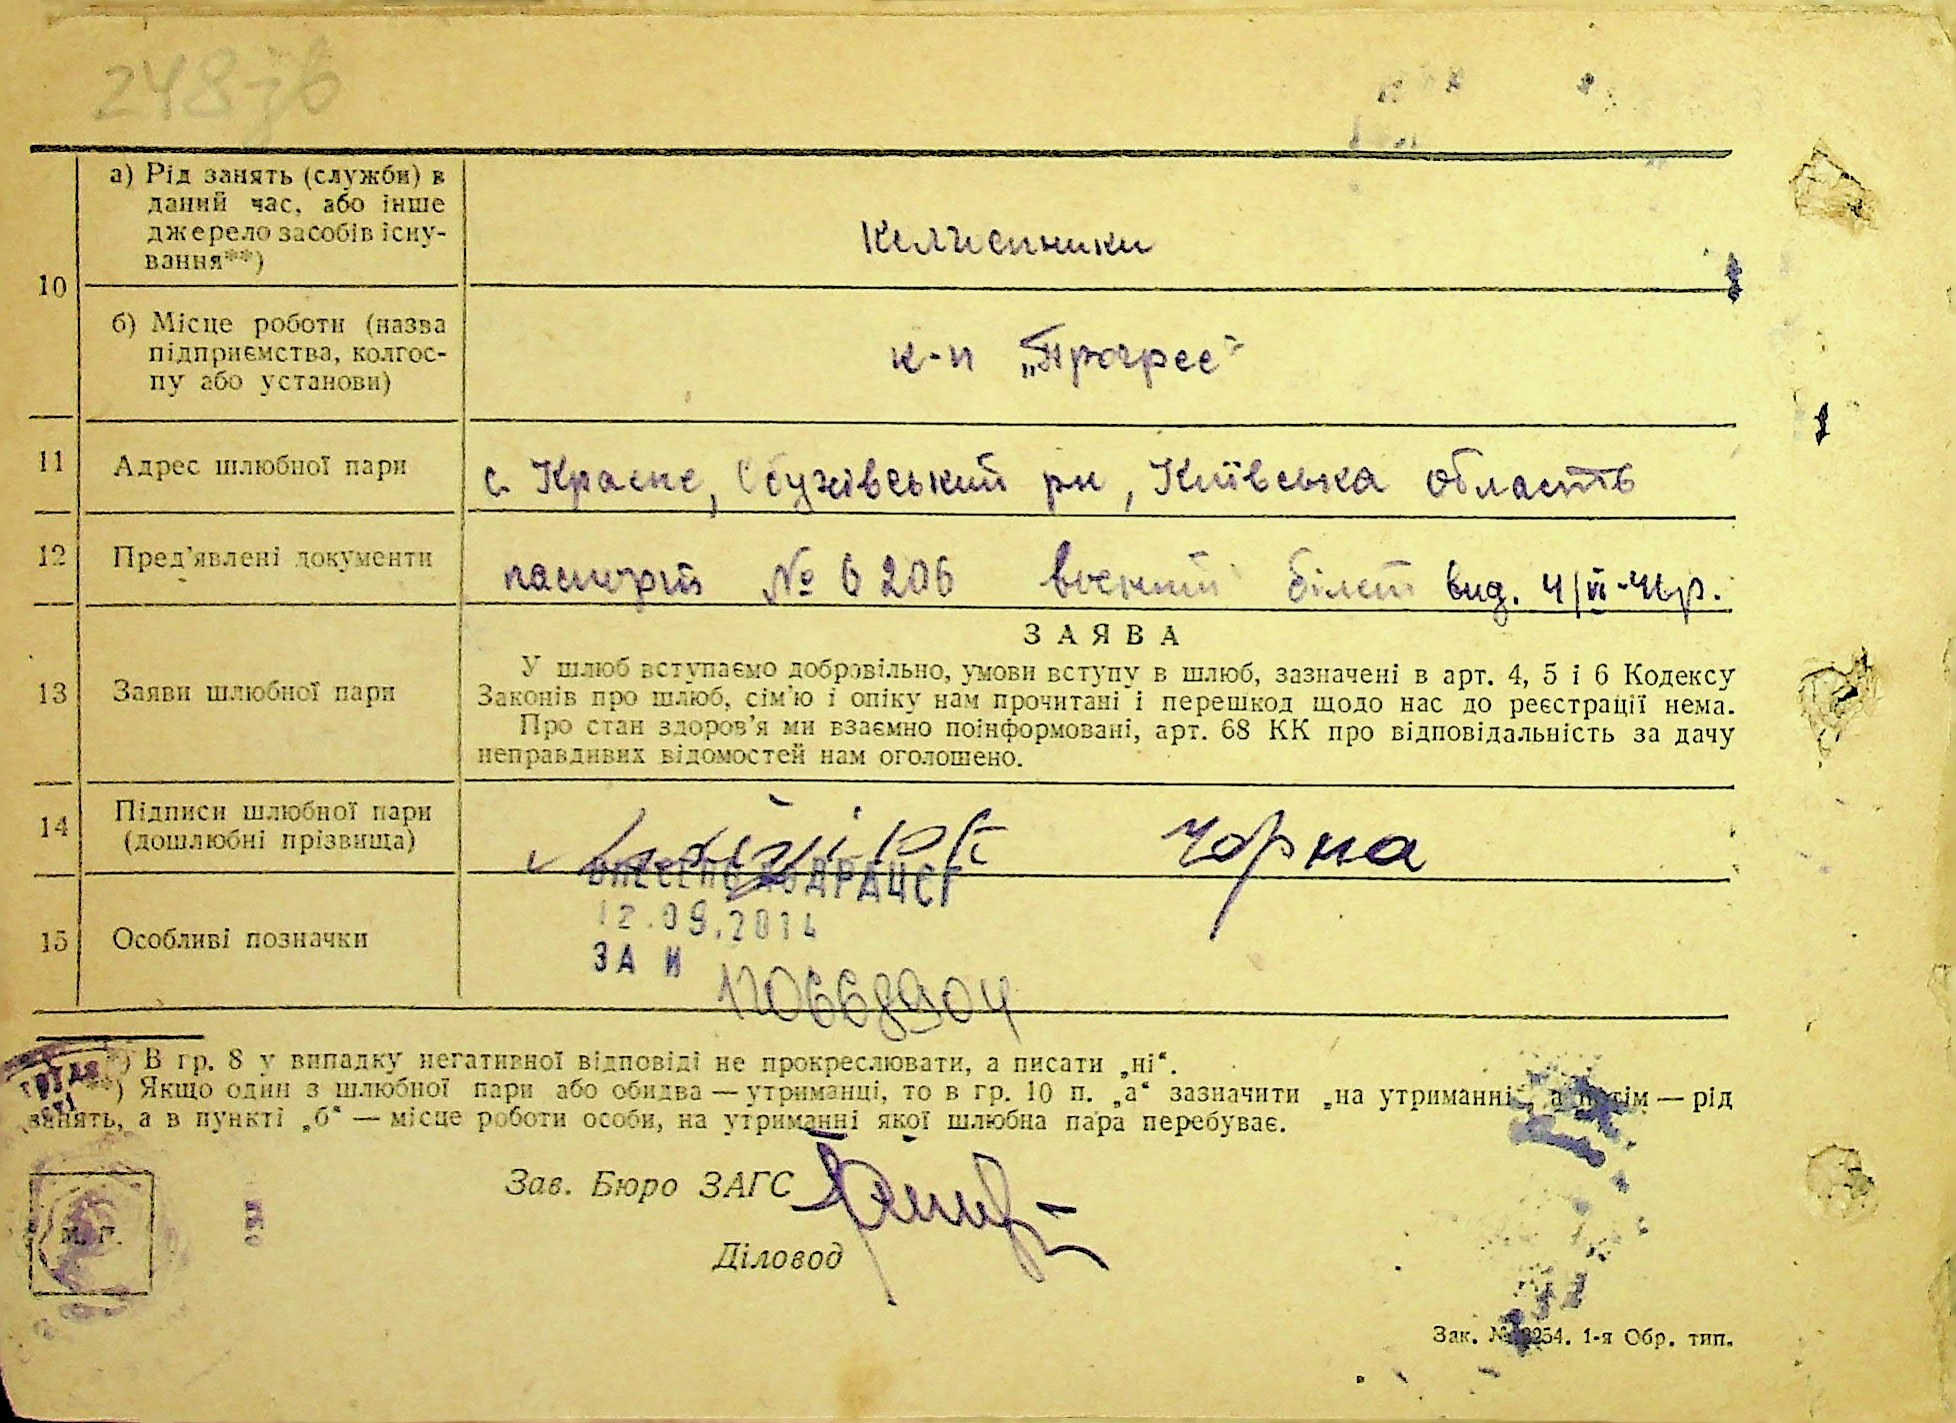 248зв
а) Рід занять (служби) в
даний час, або інше
джерело засобів існу-
вання**)
Колгоспники
10
б) Місце роботи (назва
підприємства, колгос-
пу або установи)
к-п „Прогрес“
11 Адрес шлюбної пари с. Красне, Обухівський р-н, Київська область
12 Пред’явлені документи паспорт № 6206 воєнний білет вид.
ЗАЯВА
13 Заяви шлюбної пари
У шлюб вступаємо добровільно, умови вступу в шлюб, зазначені в арт. 4, 5 і 6 Кодексу
Законів про шлюб, сім’ю і опіку нам прочитані і перешкод щодо нас до реєстрації нема.
Про стан здоров’я ми взаємно поінформовані, арт. 68 КК про відповідальність за дачу
неправдивих відомостей нам оголошено.
14 Підписи шлюбної пари
(дошлюбні прізвища)
Чорна
ВНЕСЕНО ДО ДРАЦСГ
12.09.2014
15 Особливі позначки
ЗА И
*) В гр. 8 у випадку негативної відповіді не прокреслювати, а писати „ні“.
**) Якщо один з шлюбної пари або обидва — утриманці, то в гр. 10 п. „а“ зазначити „на утриманні“, а потім — рід
занять, а в пункті „б“ — місце роботи особи, на утриманні якої шлюбна пара перебуває.
Зав. Бюро ЗАГС
М. П.
Діловод
Зак. № 254. 1-я Обр. тип.